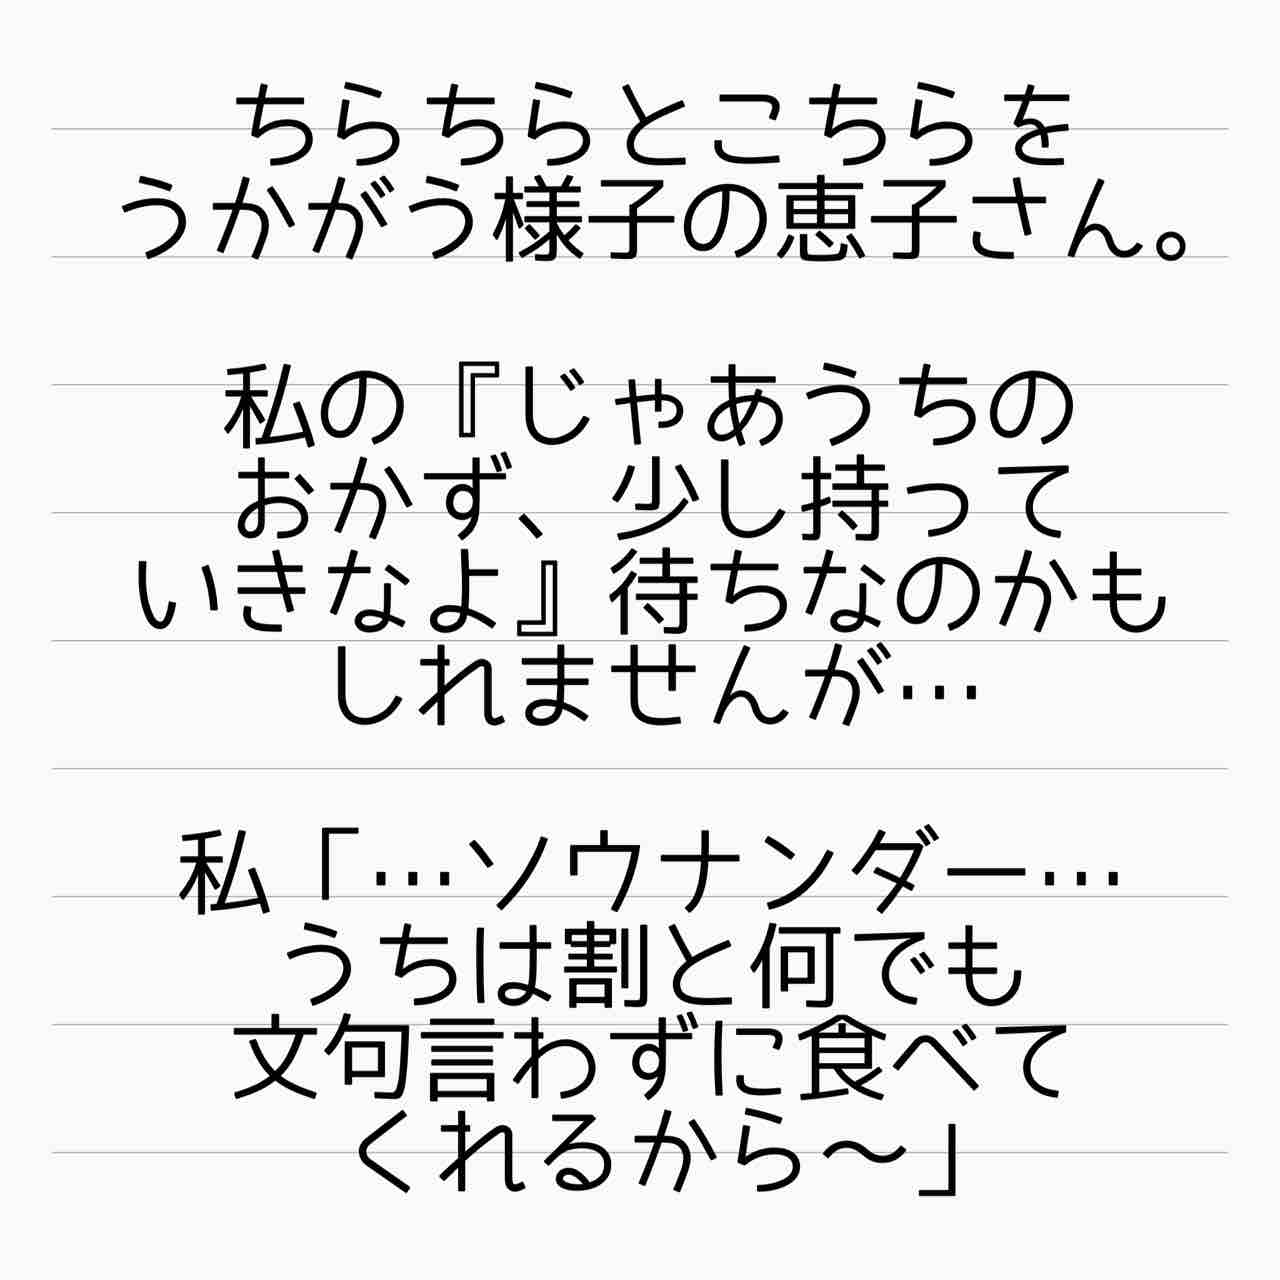 ちらちらとこちらを
うかがう様子の恵子さん。
私の『じゃあうちの
おかず、少し持って
いきなよ』待ちなのかも
しれませんが…
私「…ソウナンダー…
うちは割と何でも
文句言わずに食べて
くれるから〜」